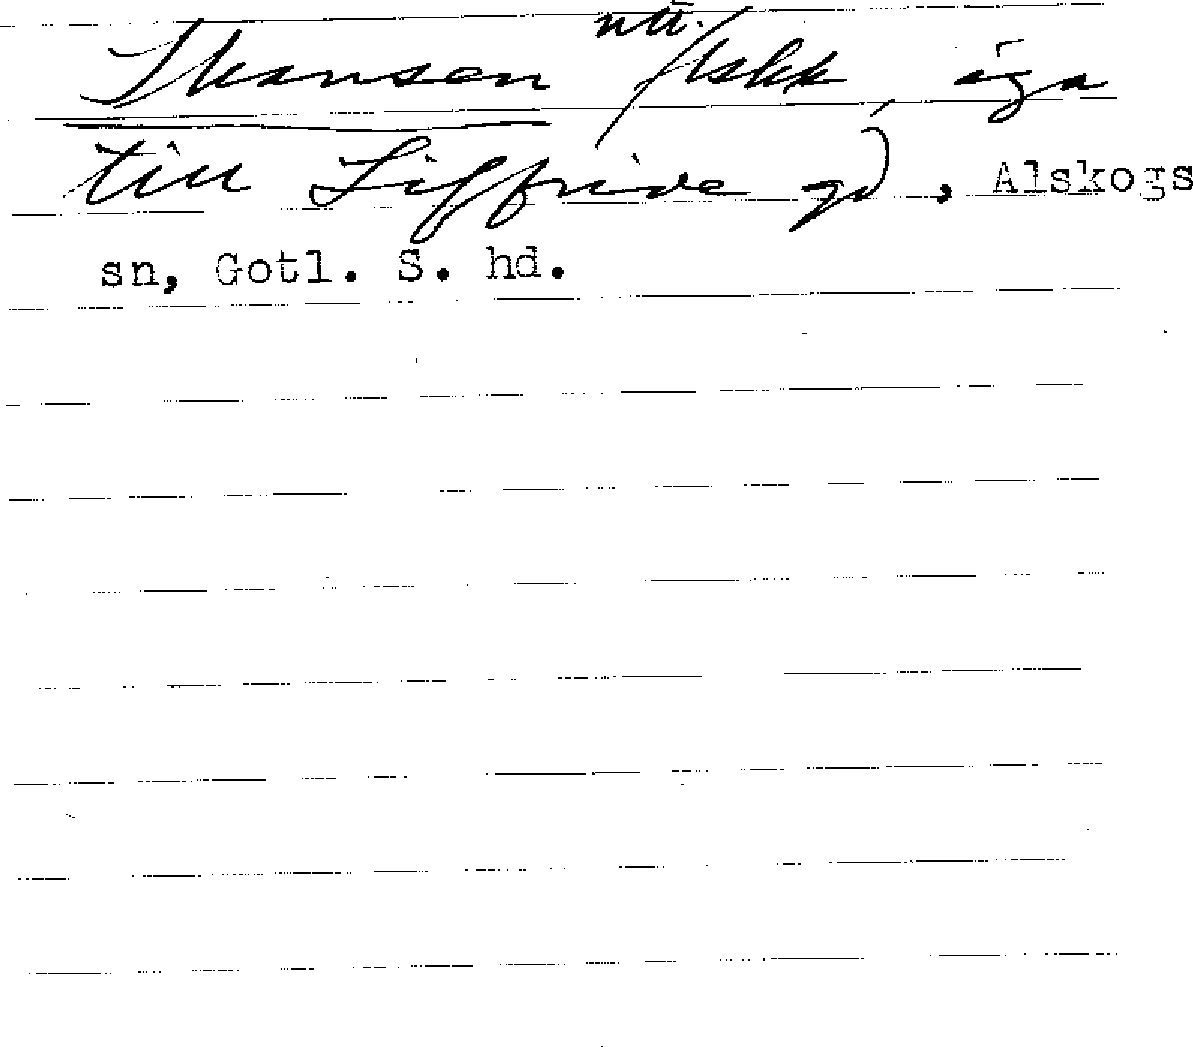 Skansen utt. /lskk, äga
till Liffride gd, Alskogs
sn, Gotl. S. hd.